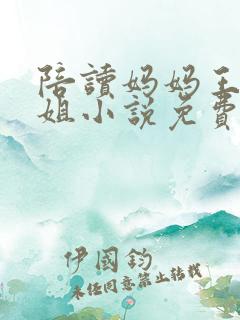 陪讀妈妈王
姐小说免費
伊國鈞
未经同意禁止转载